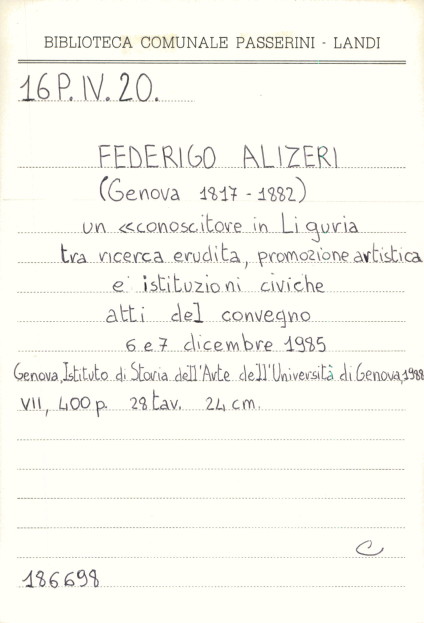 BIBLIOTECA COMUNALE PASSERINI - LANDI
16 P. IV. 20.
FEDERIGO ALIZERI
(Genova 1817 - 1882)
un «conoscitore in Liguria
tra ricerca erudita, promozione artistica
e istituzioni civiche
atti del convegno
6 e 7 dicembre 1985
Genova, Istituto di Storia dell'Arte dell'Università di Genova, 1988
VII, 400 p. 28 tav. 24 cm.
C
186698